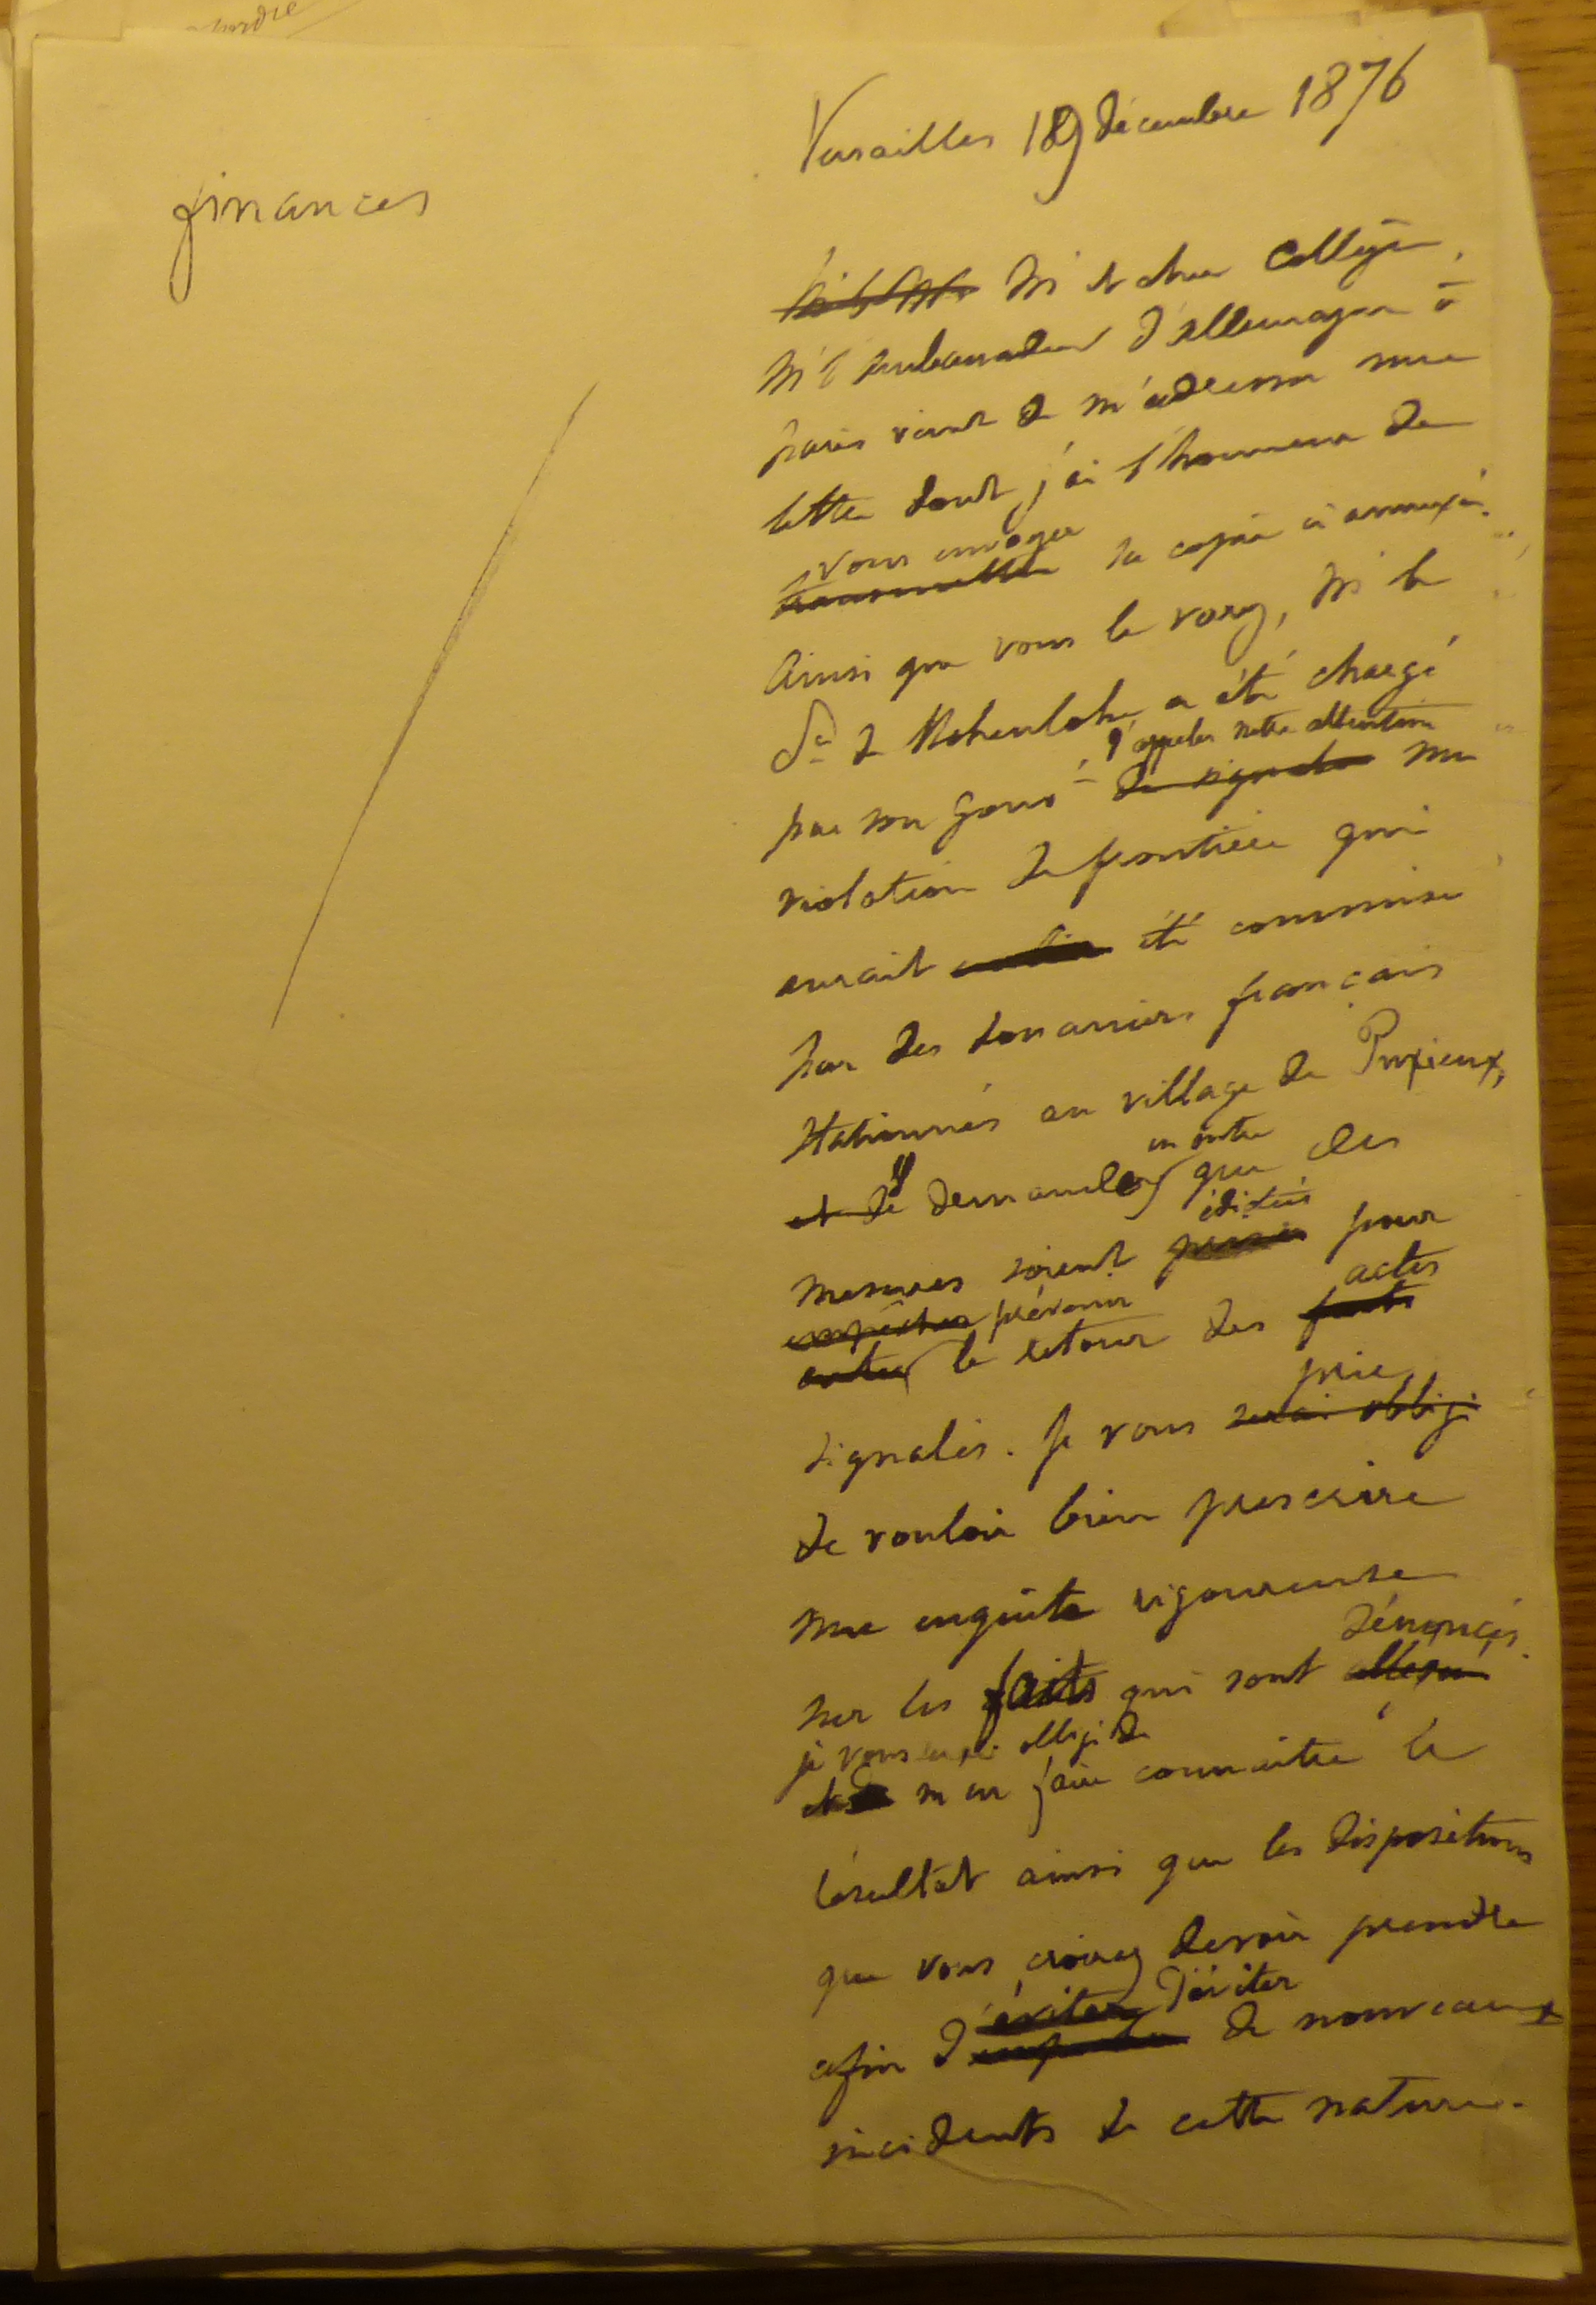 finances
Versailles 19 décembre 1876
M et cher Collègue,
M l'ambassadeur d'Allemagne à
Paris vient de m'adresser une
lettre dont j'ai l'honneur de
vous envoyer
transmettre la copie ci annexée.
Ainsi que vous le voyez, M le
Pce de Hohenlohe a été chargé
d'appeler notre attention
par son Gouvt de signaler une
violation de frontière qui
aurait été commise
par des douaniers français
stationnés au village de Puxieux,
en outre
et de demander que des
édictées
mesures soient prises pour
empêcher prévenir actes
éviter le retour des faits
prie
signalés. Je vous serai obligé
de vouloir bien prescrire
une enquête rigoureuse
dénoncés.
sur les faits qui sont allégués
je vous serai obligé de
et de m'en faire connaître le
résultat ainsi que les dispositions
que vous croirez devoir prendre
éviter d'éviter
afin d' de nouveaux
incidents de cette nature.